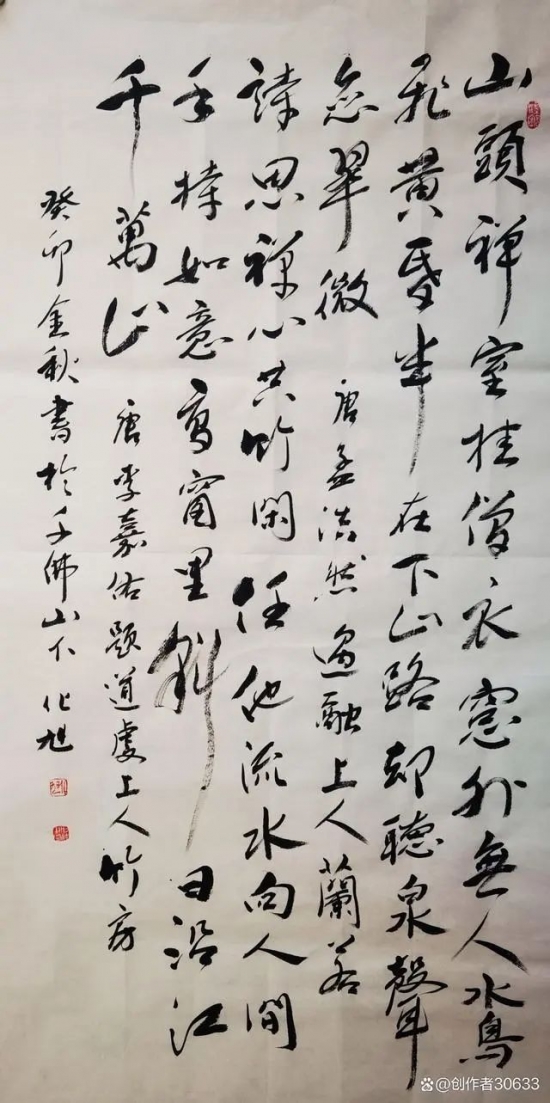 山頭禅室挂僧衣窓外無人水鳥
飛黄昏半在下山路却聽泉聲
恋翠微 唐孟浩然過融上人蘭若
詩思禅心共竹閑任他流水向人間
手持如意高窗里斜日沿江
千萬山 唐李嘉佑題道虔上人竹房
癸卯金秋書於千佛山下化旭
@创作者30633